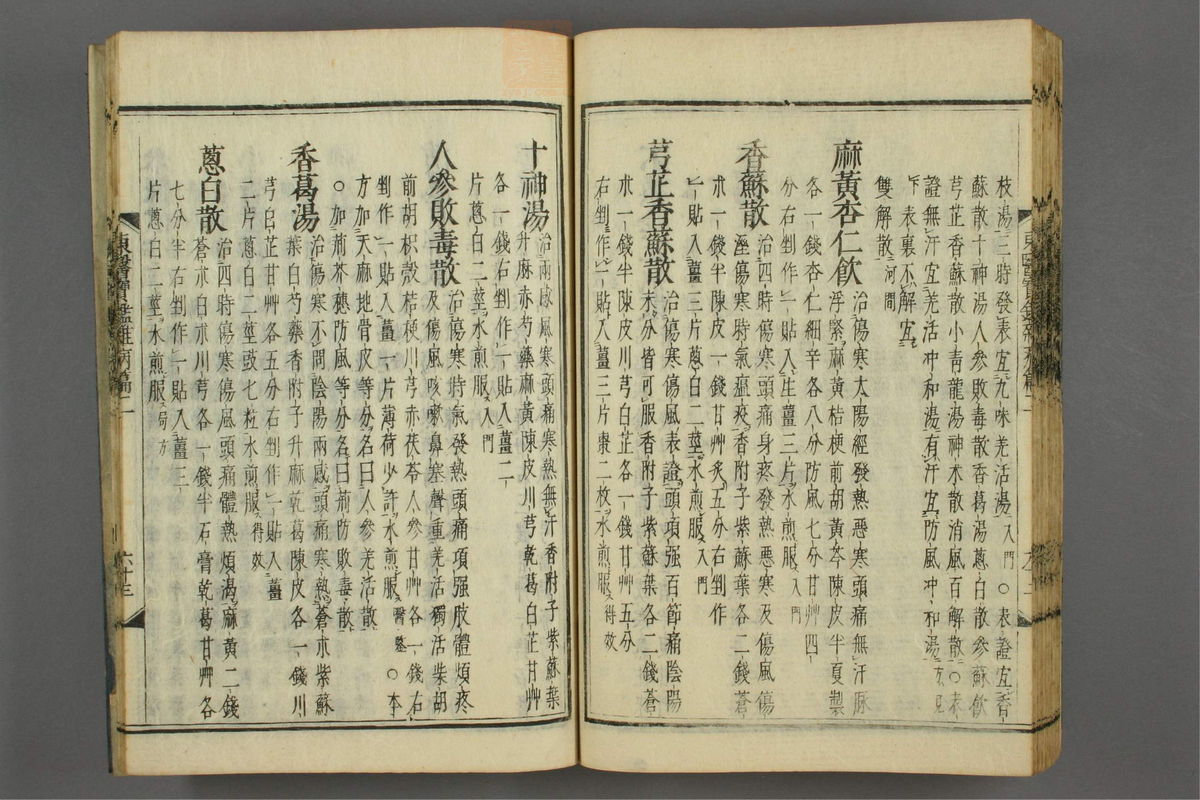 枝湯三時發表宜九味羌活湯入門○表證宜香
蘇散十神湯人參敗毒散香葛湯蔥白散參蘇飮
芎芷香蘇散小靑龍湯神朮散消風百解散○表
證無汗宜羌活冲和湯有汗宜防風冲和湯方見
下表裏不解宜
雙解散河間
麻黃杏仁飮治傷寒太陽經發熱惡寒頭痛無汗脉
浮緊麻黃桔梗前胡黃芩陳皮半夏製
各一錢杏仁細辛各八分防風七分甘艸四
分右剉作一貼入生薑三片水煎服入門
香蘇散治四時傷寒頭痛身疼發熱惡寒及傷風傷
溼傷寒時氣瘟疫香附子紫蘇葉各二錢蒼
朮一錢半陳皮一錢甘艸炙五分右剉作
一貼入薑三片蔥白二莖水煎服入門
芎芷香蘇散治傷寒傷風表證頭項强百節痛陰陽
未分皆可服香附子紫蘇葉各二錢蒼
朮一錢半陳皮川芎白芷各一錢甘艸五分
右剉作一貼入薑三片棗二枚水煎服得效
十神湯治兩感風寒頭痛寒熱無汗香附子紫蘇葉
升麻赤芍藥麻黃陳皮川芎乾葛白芷甘艸
各一錢右剉作一貼入薑二
片蔥白二莖水煎服入門
人參敗毒散治傷寒時氣發熱頭痛項强肢體煩疼
及傷風咳嗽鼻塞聲重羌活獨活柴胡
前胡枳殼桔梗川芎赤茯苓人參甘艸各一錢右
剉作一貼入薑一片薄荷少許水煎服醫鑒○本
方加天麻地骨皮等分名曰人參羌活散
○加荊芥穗防風等分名曰荊防敗毒散
香葛湯治傷寒不問陰陽兩感頭痛寒熱蒼朮紫蘇
葉白芍藥香附子升麻乾葛陳皮各一錢川
芎白芷甘艸各五分右剉作一貼入薑
二片蔥白二莖豉七粒水煎服得效
蔥白散治四時傷寒傷風頭痛體熱煩渴麻黃二錢
蒼朮白朮川芎各一錢半石膏乾葛甘艸各
七分半右剉作一貼入薑三
片蔥白二莖水煎服局方
東醫寶鑑雜病篇二
六十三